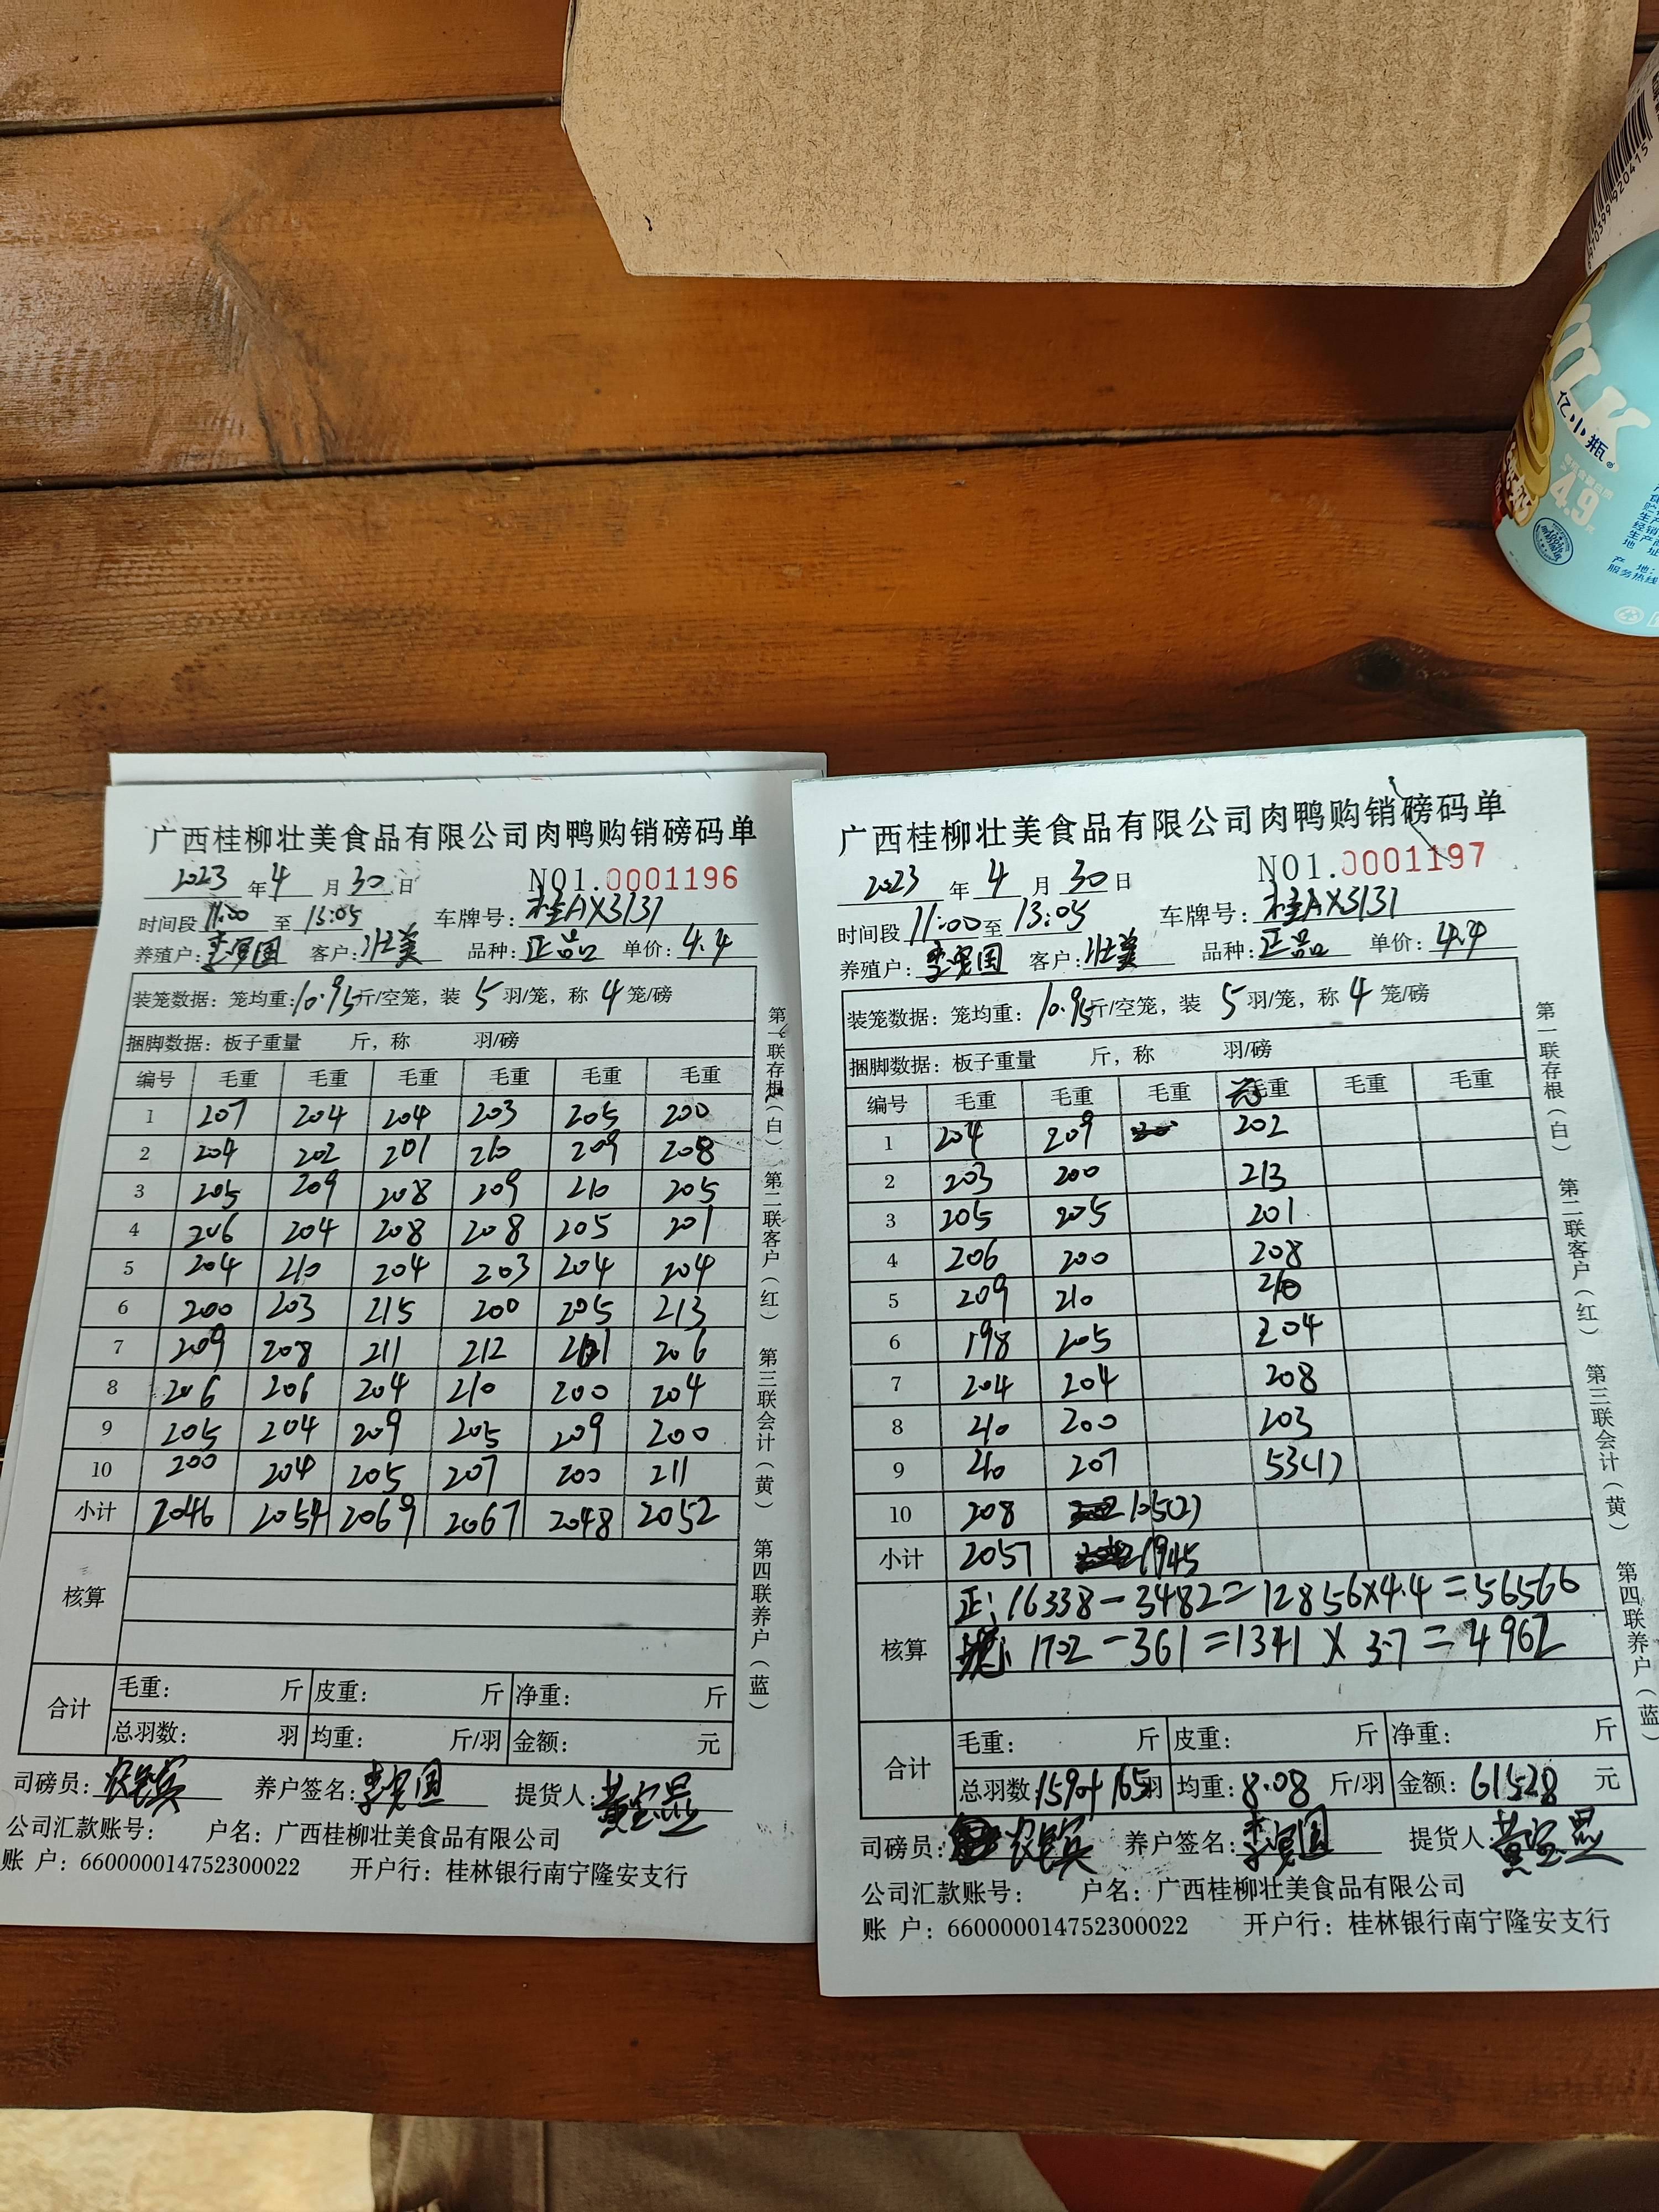 广西桂柳壮美食品有限公司肉鸭购销磅码单
2023年4月30日 NO1.0001196
时间段11:00至13:05 车牌号：桂AX3131
养殖户： 客户：壮美 品种：正品 单价：4.4
装笼数据：笼均重：10.95斤/空笼，装5羽/笼，称4笼/磅
捆脚数据：板子重量 斤，称 羽/磅
编号 毛重 毛重 毛重 毛重 毛重 毛重
1 207 204 204 203 205 200
2 204 202 201 210 209 208
3 205 209 208 209 210 205
4 206 204 208 208 205 201
5 204 210 204 203 204 204
6 200 203 215 200 205 213
7 209 208 211 212 201 206
8 206 206 204 210 200 204
9 205 204 209 205 209 200
10 200 204 205 207 200 211
小计 2046 2054 2069 2067 2048 2052
核算
合计 毛重： 斤 皮重： 斤 净重： 斤
总羽数： 羽 均重： 斤/羽 金额： 元
司磅员： 养户签名： 提货人：
公司汇款账号： 户名：广西桂柳壮美食品有限公司
账 户：660000014752300022 开户行：桂林银行南宁隆安支行
第一联存根（白） 第二联客户（红） 第三联会计（黄） 第四联养户（蓝）
广西桂柳壮美食品有限公司肉鸭购销磅码单
2023年4月30日 NO1.0001197
时间段11:00至13:05 车牌号：桂AX3131
养殖户： 客户：壮美 品种：正品 单价：4.4
装笼数据：笼均重：10.95斤/空笼，装5羽/笼，称4笼/磅
捆脚数据：板子重量 斤，称 羽/磅
编号 毛重 毛重 毛重 毛重 毛重 毛重
1 204 209 202
2 203 200 213
3 205 205 201
4 206 200 208
5 209 210 210
6 198 205 204
7 204 204 208
8 210 200 203
9 210 207 53(1)
10 208 105(2)
小计 2057 1945
核算 正：16338-3482=12856×4.4=56566
1702-361=1341×3.7=4962
合计 毛重： 斤 皮重： 斤 净重： 斤
总羽数1590+165羽 均重：8.08斤/羽 金额：61528元
司磅员： 养户签名： 提货人：
公司汇款账号： 户名：广西桂柳壮美食品有限公司
账 户：660000014752300022 开户行：桂林银行南宁隆安支行
第一联存根（白） 第二联客户（红） 第三联会计（黄） 第四联养户（蓝）
亿小瓶
4.9